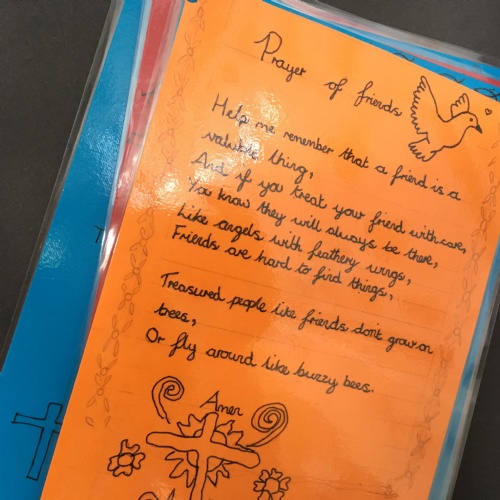 Prayer of friends
Help me remember that a friend is a
valuable thing,
And if you treat your friend with care,
You know they will always be there,
Like angels with feathery wings,
Friends are hard to find things,
Treasured people like friends don't grow on
bees,
Or fly around like buzzy bees.
Amen